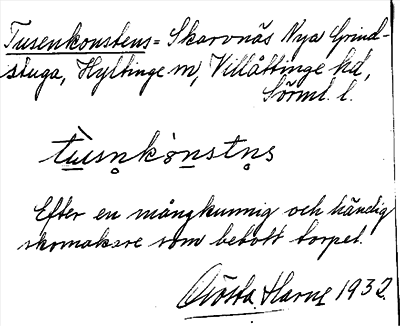 Tusenkonstens = Skarvnäs Nya Grind-
stuga, Hyltinge sn, Villåttinge hd,
Sörml. l.
tusn̥kònstn̥s
Efter en mångkunnig och händig
skomakare som bebott torpet.
Gösta Harne 1932.